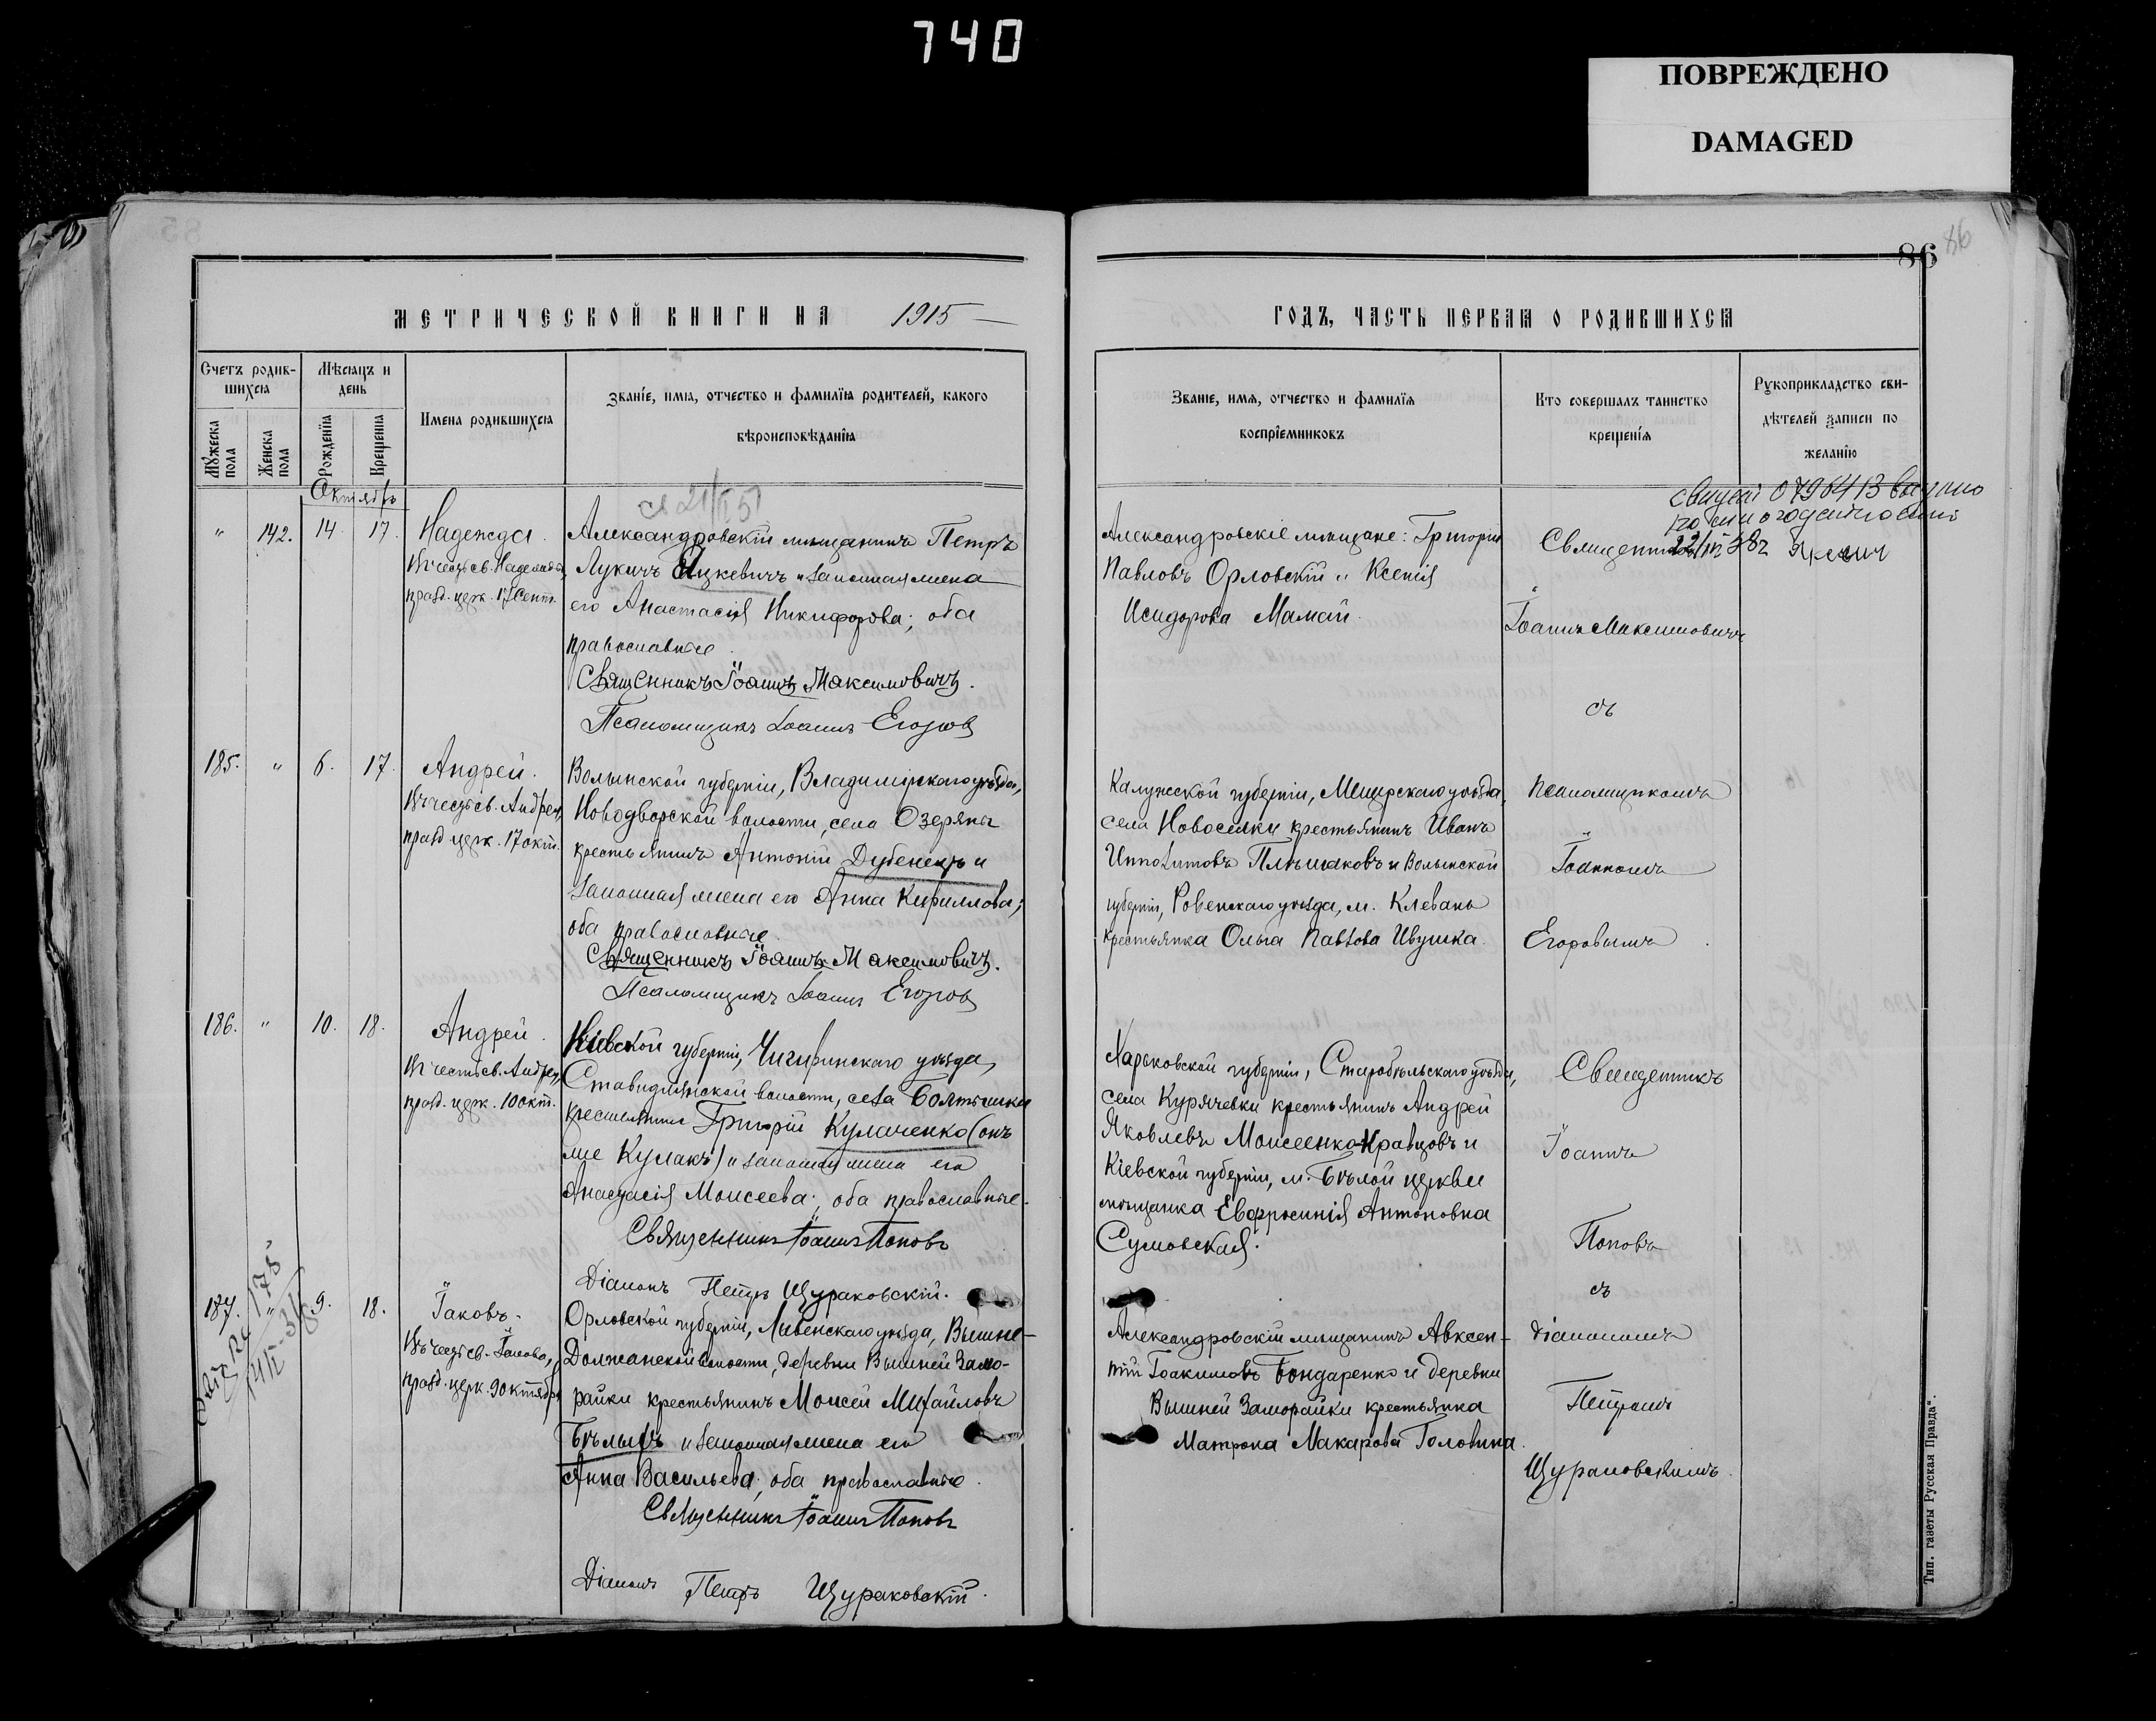 740
ПОВРЕЖДЕНО
DAMAGED
86
86
МЕТРИЧЕСКОЙ КНИГИ НА 1915
Счетъ родив-
шихся
Мѣсяцъ и
день
Имена родившихся
Званіе, имя, отчество и фамилія родителей, какого
вѣроисповѣданія
Мужеска
пола
Женска
пола
Рожденія
Крещенія
Октябрь
" 142. 14. 17.
Надежда.
Въ честь св. Надежды,
празд. церк. 17 Сент.
Александровскій мѣщанинъ Петръ
Лукичъ Яцкевичъ и законная жена
его Анастасія Никифорова; оба
православные.
Священникъ Іоаннъ Максимовичъ.
Псаломщикъ Іоаннъ Егоровъ
185. " 6. 17.
Андрей.
Въ честь св. Андрея,
празд. церк. 17 окт.
Волынской губерніи, Владимірскаго уѣзда,
Новодворской волости, села Озеряны
крестьянинъ Антоній Дубенецъ и
законная жена его Анна Кириллова;
оба православные.
Священникъ Іоаннъ Максимовичъ.
Псаломщикъ Іоаннъ Егоровъ
186. " 10. 18.
Андрей.
Въ честь св. Андрея,
празд. церк. 10 окт.
Кіевской губерніи, Чигиринскаго уѣзда,
Ставидлянской волости, села Болтышки
крестьянинъ Григорій Кулаченко (онъ
же Кулакъ) и законная жена его
Анастасія Моисеева; оба православные.
Священникъ Іоаннъ Поповъ
Діаконъ Петръ Щураковскій.
187. " 9. 18.
Іаковъ.
Въ честь св. Іакова,
празд. церк. 9 октября
Орловской губерніи, Ливенскаго уѣзда, Вышне-
Должанской волости, деревни Вышней Замо-
райки крестьянинъ Моисей Михайловъ
Бѣлыхъ и законная жена его
Анна Васильева; оба православные.
Священникъ Іоаннъ Поповъ
Діаконъ Петръ Щураковскій.
ГОДЪ, ЧАСТЬ ПЕРВАЯ О РОДИВШИХСЯ
Званіе, имя, отчество и фамилія
воспріемниковъ
Кто совершалъ таинство
крещенія
Рукоприкладство сви-
дѣтелей записи по
желанію
Александровскіе мѣщане: Григорій
Павловъ Орловскій и Ксенія
Исидорова Мамай.
Священникъ
Іоаннъ Максимовичъ
съ
Калужской губерніи, Мещерскаго уѣзда,
села Новоселки крестьянинъ Иванъ
Ипполитовъ Плѣшаковъ и Волынской
губерніи, Ровенскаго уѣзда, м. Клевань
крестьянка Ольга Павлова Ивушка.
псаломщикомъ
Іоанномъ
Егоровымъ
Харьковской губерніи, Старобѣльскаго уѣзда,
села Курячевки крестьянинъ Андрей
Яковлевъ Моисеенко-Кравцовъ и
Кіевской губерніи, м. Бѣлой церкви
мѣщанка Евфросинія Антоновна
Сумовская.
Священникъ
Іоаннъ
Поповъ
съ
Александровскій мѣщанинъ Авксен-
тій Іоакимовъ Бондаренко и деревни
Вышней Заморайки крестьянка
Матрона Макарова Головина.
діакономъ
Петромъ
Щураковскимъ.
Тип. газеты Русская Правда".